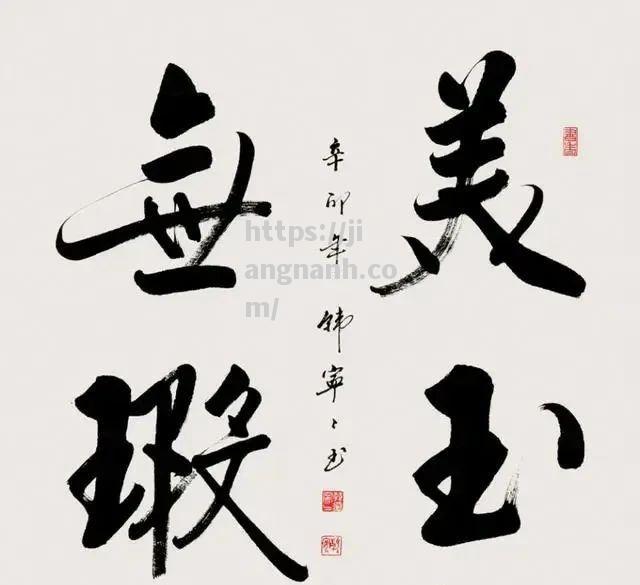 美玉
無瑕
辛卯年 韩寧寧书
https://ji
angnanh.co
m/